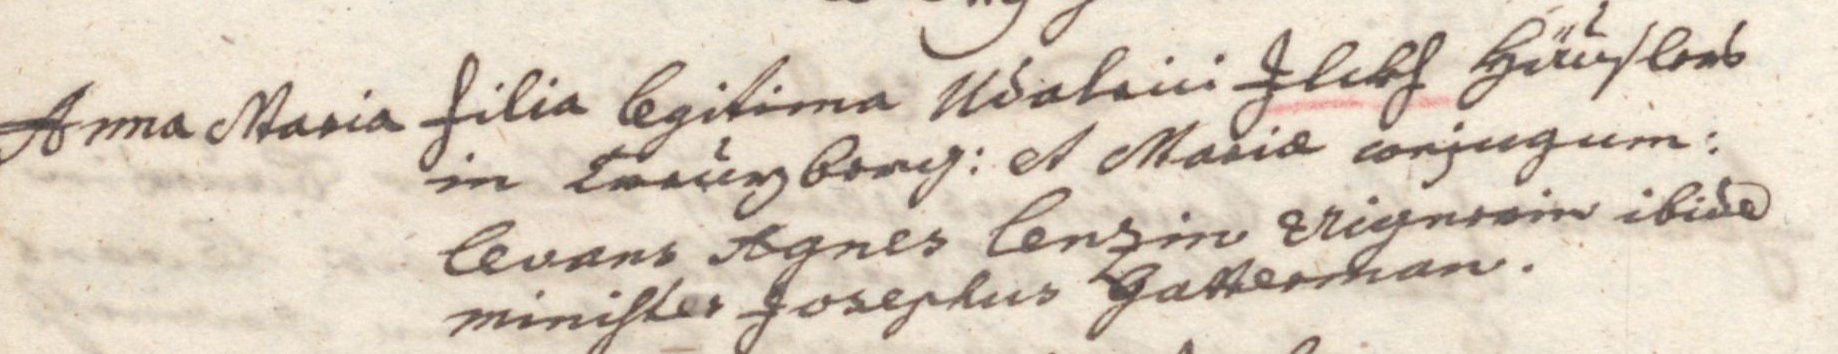 Anna Maria filia legitima Udalrici Ilckh Häuslers
in Creuzberg: et Mariæ conjugum:
levans Agnes Lenzin ibidē
minister Josephus Gatterman.